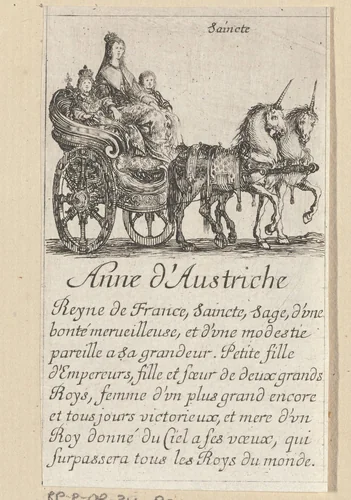 Saincte
Anne d'Austriche
Reyne de France, Saincte, Sage, d'vne
bonté merueilleuse, et d'vne modestie
pareille a sa grandeur. Petite fille
d'Empereurs, fille et sœur de deux grands
Roys, femme d'vn plus grand encore
et tousjours victorieux, et mere d'vn
Roy donné du Ciel a ses vœux, qui
surpassera tous les Roys du monde.